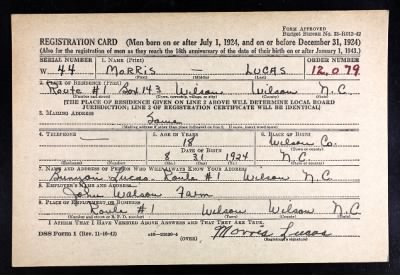 FORM APPROVED
Budget Bureau No. 33-R012-42
REGISTRATION CARD—(Men born on or after July 1, 1924, and on or before December 31, 1924)
(Also for the registration of men as they reach the 18th anniversary of the date of their birth on or after January 1, 1943.)
SERIAL NUMBER 1. NAME (Print) ORDER NUMBER
W 44 MORRIS — LUCAS 12,079
(First) (Middle) (Last)
2. PLACE OF RESIDENCE (Print)
Route #1 Box 143 Wilson Wilson N.C.
(Number and street) (Town, township, village, or city) (County) (State)
[THE PLACE OF RESIDENCE GIVEN ON LINE 2 ABOVE WILL DETERMINE LOCAL BOARD
JURISDICTION; LINE 2 OF REGISTRATION CERTIFICATE WILL BE IDENTICAL]
3. MAILING ADDRESS
Same
(Mailing address if other than place indicated on line 2. If same, insert word same)
4. TELEPHONE 5. AGE IN YEARS 6. PLACE OF BIRTH
18 Wilson Co.
DATE OF BIRTH (Town or county)
8 31 1924 N.C.
(Exchange) (Number) (Mo.) (Day) (Yr.) (State or country)
7. NAME AND ADDRESS OF PERSON WHO WILL ALWAYS KNOW YOUR ADDRESS
Bunyon Lucas Route #1 Wilson N.C.
8. EMPLOYER'S NAME AND ADDRESS
John Watson Farm
9. PLACE OF EMPLOYMENT OR BUSINESS
Route #1 Wilson Wilson N.C.
(Number and street or R. F. D. number) (Town) (County) (State)
I AFFIRM THAT I HAVE VERIFIED ABOVE ANSWERS AND THAT THEY ARE TRUE.
DSS Form 1 (Rev. 11-16-42) (OVER) Morris Lucas
(Registrant's signature)